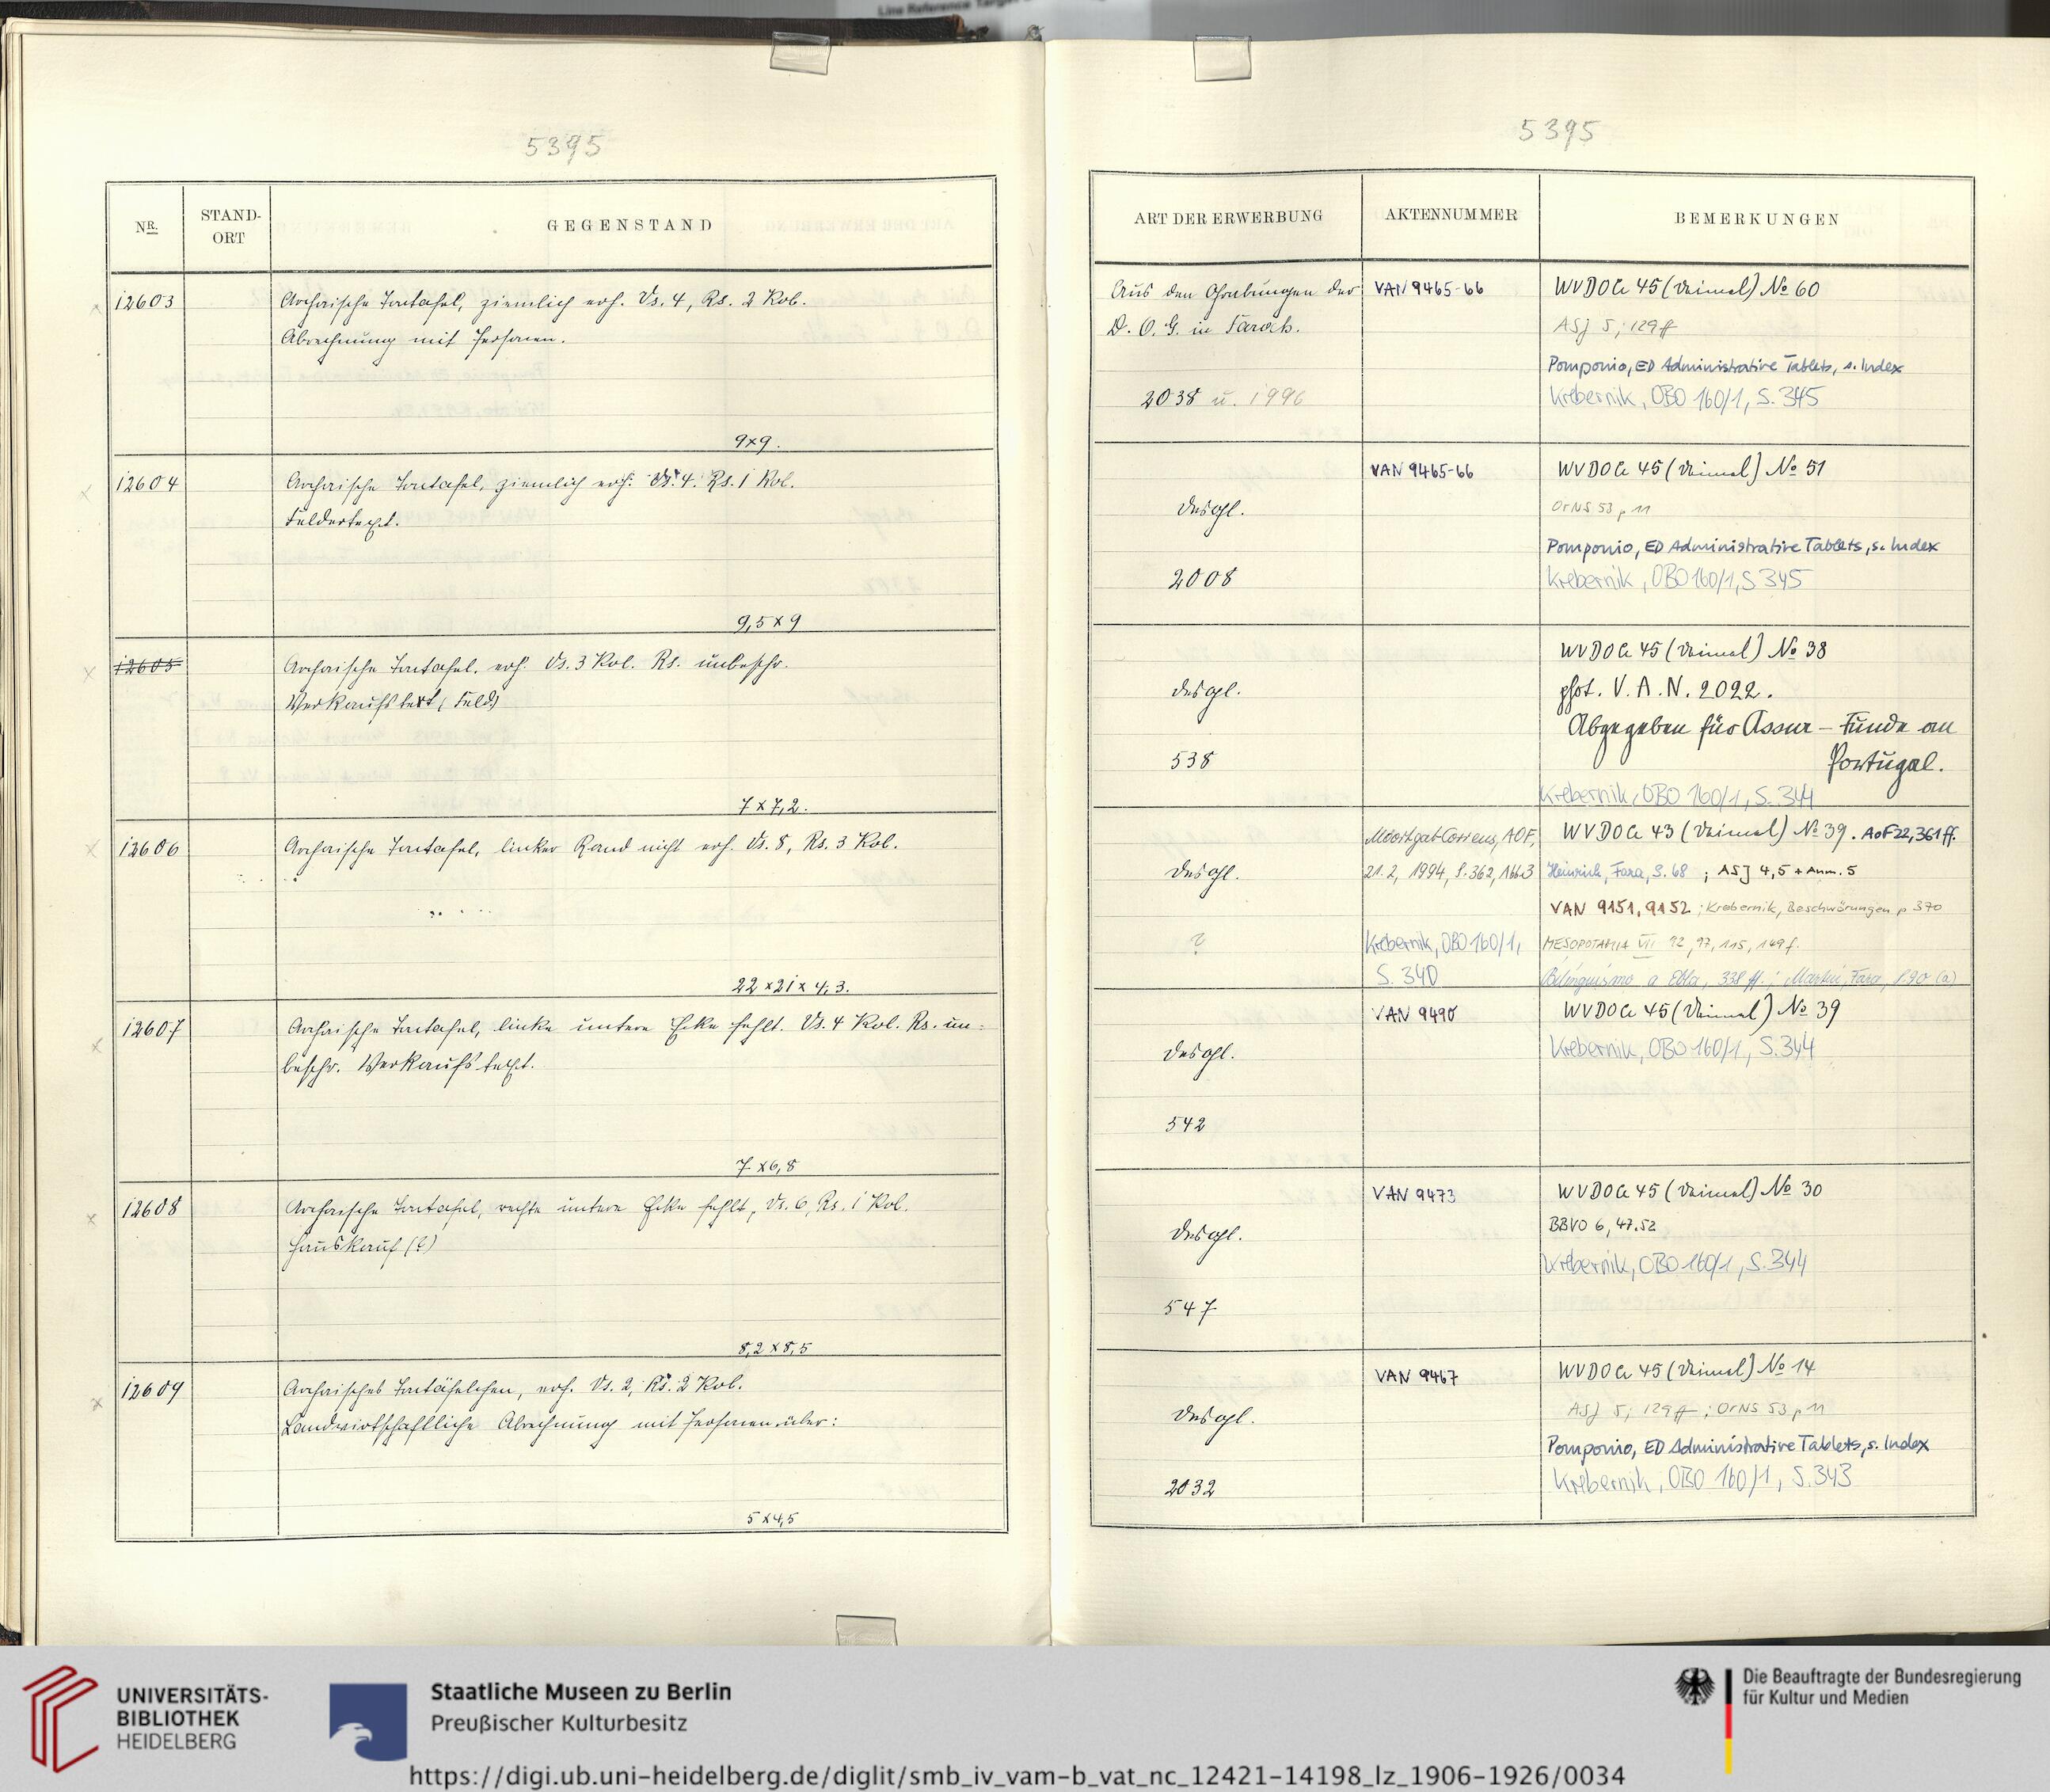 5395
NR.
STAND-
ORT
GEGENSTAND
12603
Archaische Tontafel, ziemlich erh. Vs. 4, Rs. 2 Kol.
Abrechnung mit Personen.
9x9.
12604
Archaische Tontafel, ziemlich erh. Vs. 4. Rs. 1 Kol.
Feldertext.
9,5x9
12605
Archaische Tontafel. erh. Vs. 3 Kol. Rs. unbeschr.
Verkaufstext (Feld)
7x7,2.
12606
Archaische Tontafel, linker Rand nicht erh. Vs. 8, Rs. 3 Kol.
22x21x4,3.
12607
Archaische Tontafel, linke untere Ecke fehlt. Vs. 4 Kol. Rs. un-
beschr. Verkaufstext.
7x6,8
12608
Archaische Tontafel, rechte untere Ecke fehlt, Vs. 6, Rs. 1 Kol.
Hauskauf (?)
8,2x8,5
12609
Archaisches Tontäfelchen, erh. Vs. 2, Rs. 2 Kol.
Landwirtschaftliche Abrechnung mit Personen über:
5x4,5
5395
ART DER ERWERBUNG
AKTENNUMMER
BEMERKUNGEN
Aus den Grabungen der
D. O. G. in Farah.
2038 u. 1996
VAN 9465-66
WVDOG 45 (Deimel) № 60
ASJ 5; 129 ff
Pomponio, ED Administrative Tablets, s. Index
Krebernik, OBO 160/1, S. 345
desgl.
2008
VAN 9465-66
WVDOG 45 (Deimel) № 51
OrNS 53 p 11
Pomponio, ED Administrative Tablets, s. Index
Krebernik, OBO 160/1, S 345
desgl.
538
WVDOG 45 (Deimel) № 38
phot. V. A. N. 2022.
Abgegeben für Assur – Funde an
Portugal.
Krebernik, OBO 160/1, S. 344
desgl.
?
Moortgat-Correns, AOF,
21.2, 1994, S. 362, Abb 3
Krebernik, OBO 160/1,
S. 340
WVDOG 43 (Deimel) № 39. AoF 22, 361 ff.
Heinrich, Fara, S. 68 ; ASJ 4,5 + Anm. 5
VAN 9151, 9152 ; Krebernik, Beschwörungen p 370
MESOPOTAMIA VII 92, 97, 115, 149 f.
Bilinguismo a Ebla, 338 ff.; Martin, Fara, S 90 (a)
desgl.
542
VAN 9490
WVDOG 45 (Deimel) № 39
Krebernik, OBO 160/1, S. 344
desgl.
547
VAN 9473
WVDOG 45 (Deimel) № 30
BBVO 6, 47.52
Krebernik, OBO 160/1, S. 344
desgl.
2032
VAN 9467
WVDOG 45 (Deimel) № 14
ASJ 5; 129 ff ; OrNS 53 p 11
Pomponio, ED Administrative Tablets, s. Index
Krebernik, OBO 160/1, S. 343
UNIVERSITÄTS-
BIBLIOTHEK
HEIDELBERG
Staatliche Museen zu Berlin
Preußischer Kulturbesitz
Die Beauftragte der Bundesregierung
für Kultur und Medien
https://digi.ub.uni-heidelberg.de/diglit/smb_iv_vam-b_vat_nc_12421-14198_lz_1906-1926/0034